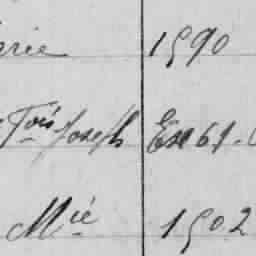 arie 1590
Fois Joseph Ex 61.
Mié 1502